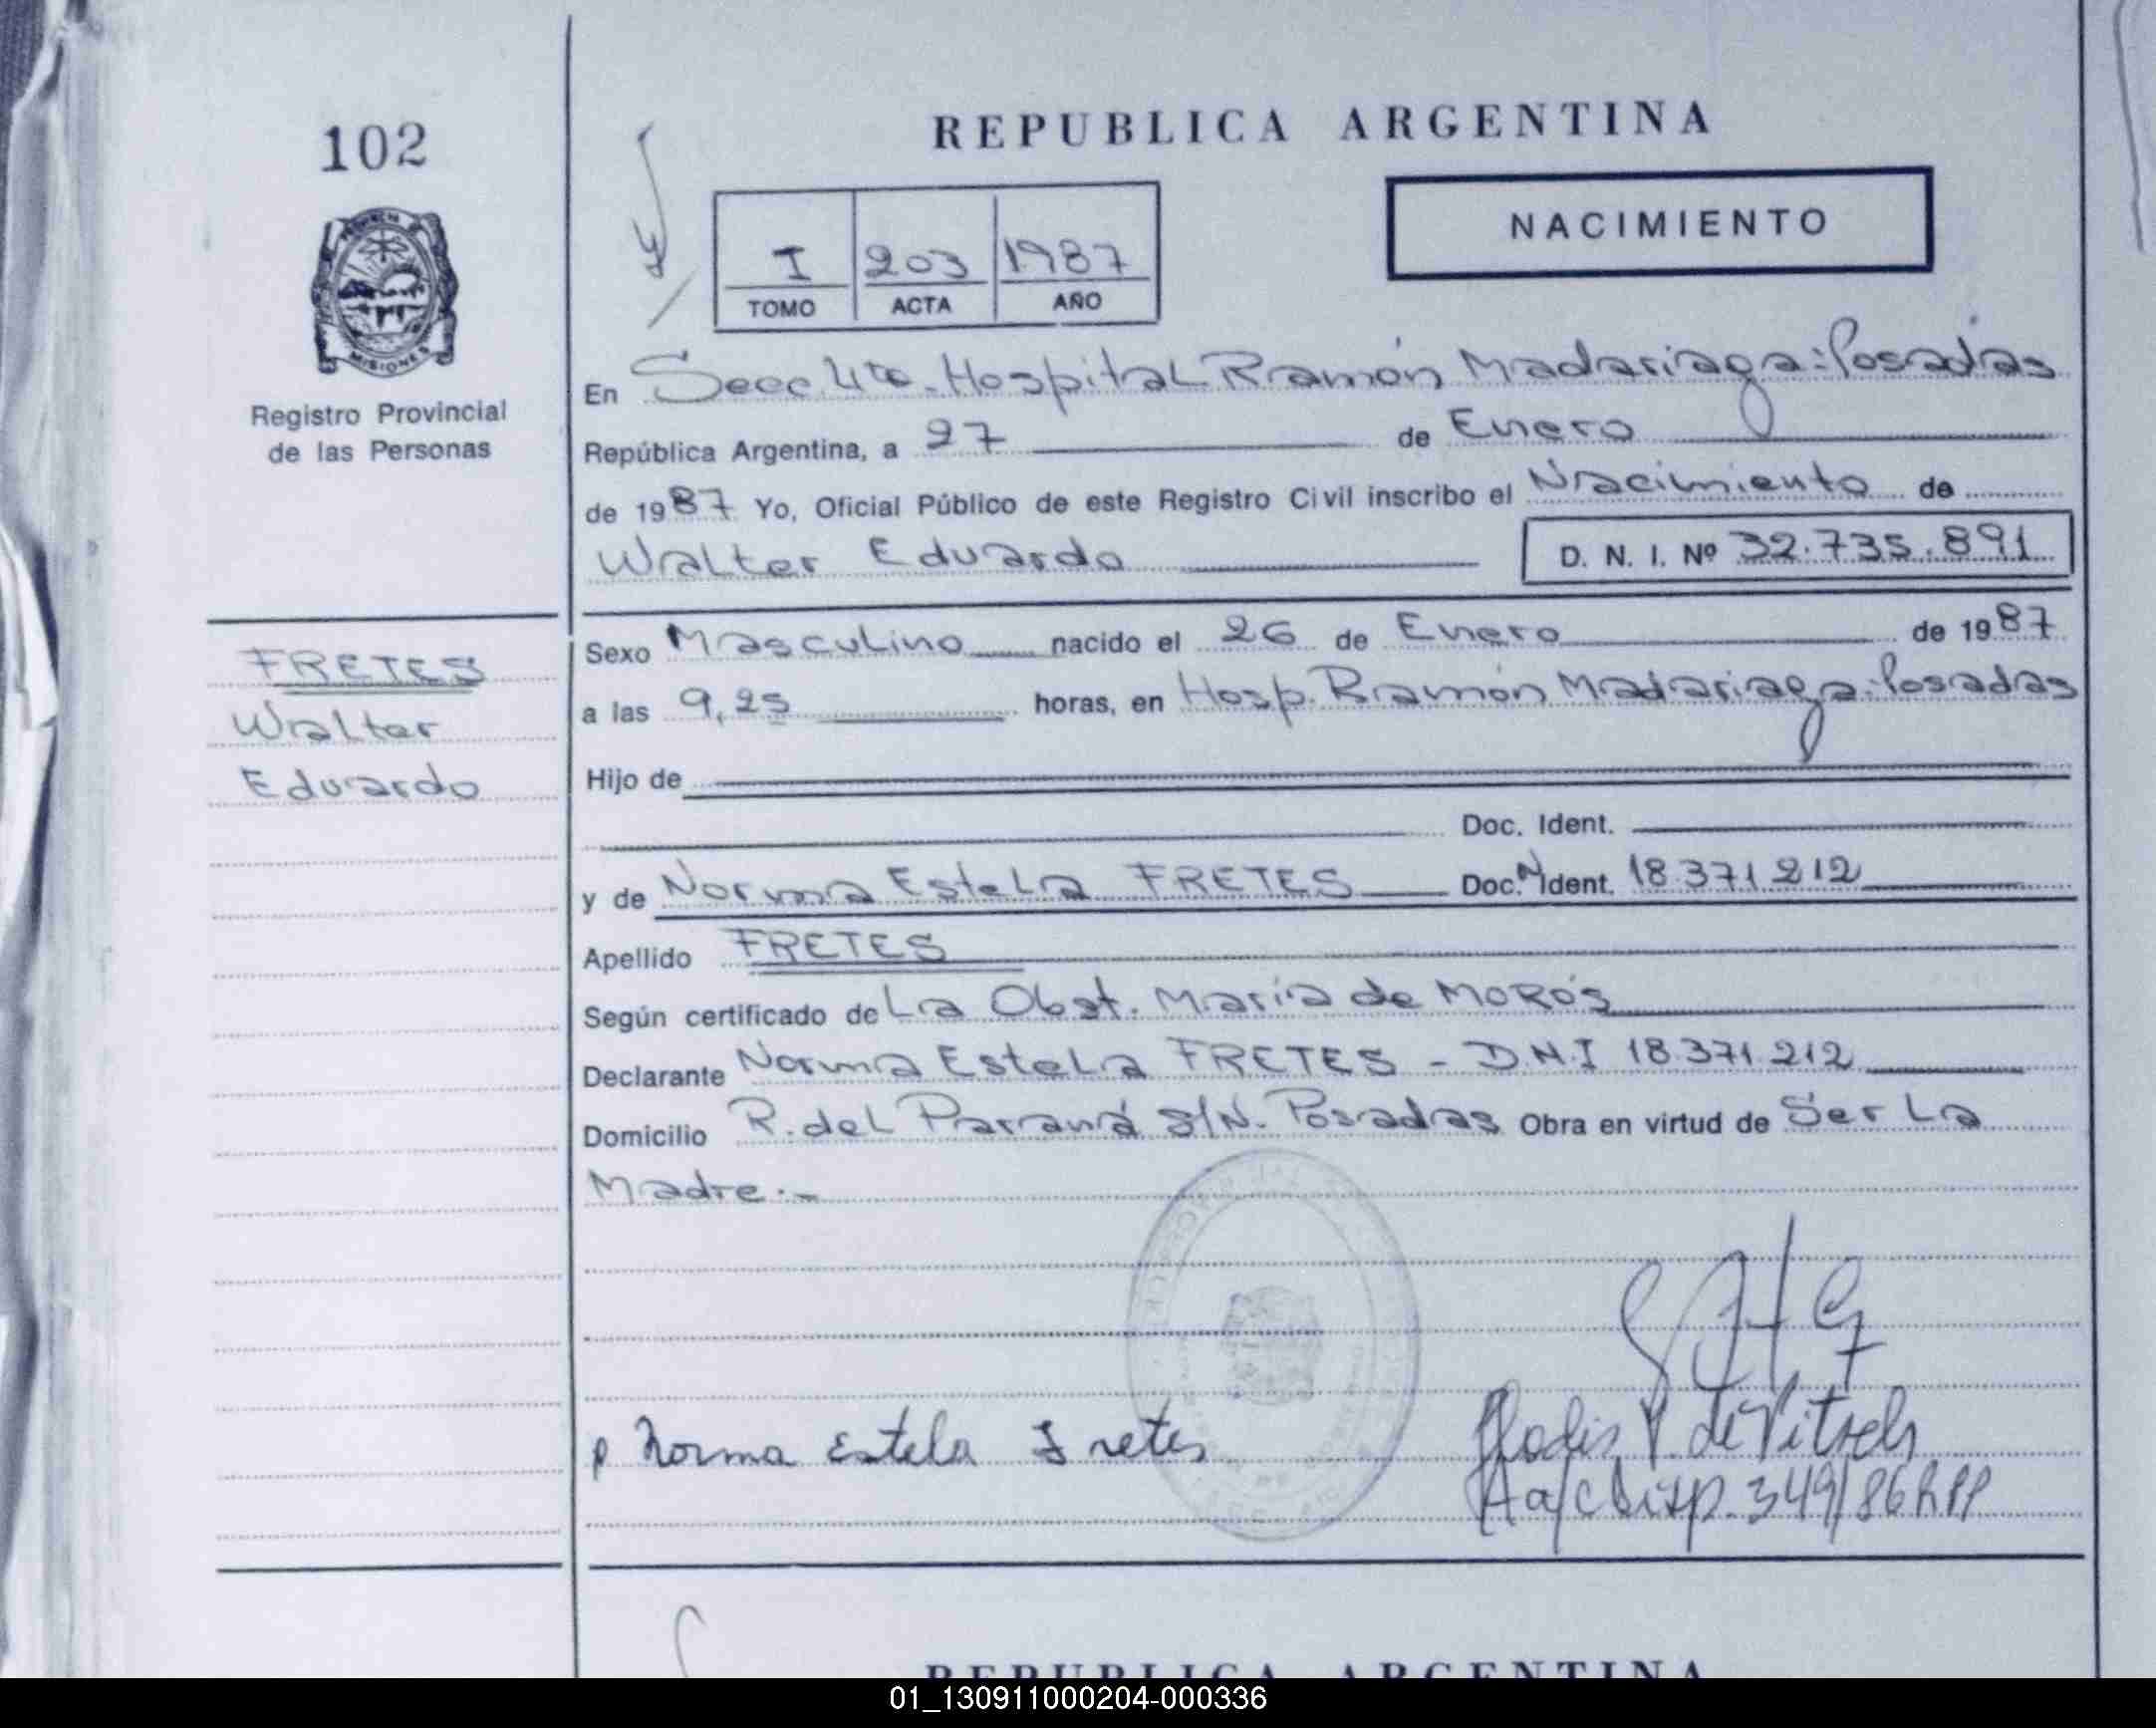 102
REPUBLICA ARGENTINA
NACIMIENTO
I 203 1987
TOMO ACTA AÑO
MISIONES
Registro Provincial
de las Personas
En Secc. 4ta. Hospital Ramón Madariaga: Posadas
República Argentina, a 27 de Enero
de 1987 Yo, Oficial Público de este Registro Civil inscribo el Nacimiento de
Walter Eduardo D. N. I. Nº 32.735.891
FRETES
Walter
Eduardo
Sexo Masculino nacido el 26 de Enero de 1987
a las 9,25 horas, en Hosp. Ramón Madariaga: Posadas
Hijo de
Doc. Ident.
y de Norma Estela FRETES Doc. N. Ident. 18.371.212
Apellido FRETES
Según certificado de La Obst. María de MOROS
Declarante Norma Estela FRETES - D.N.I 18.371.212
Domicilio R. del Paraná S/N. Posadas Obra en virtud de Ser La
Madre.-
p Norma Estela Fretes
349/86
REPUBLICA ARGENTINA
01_130911000204-000336